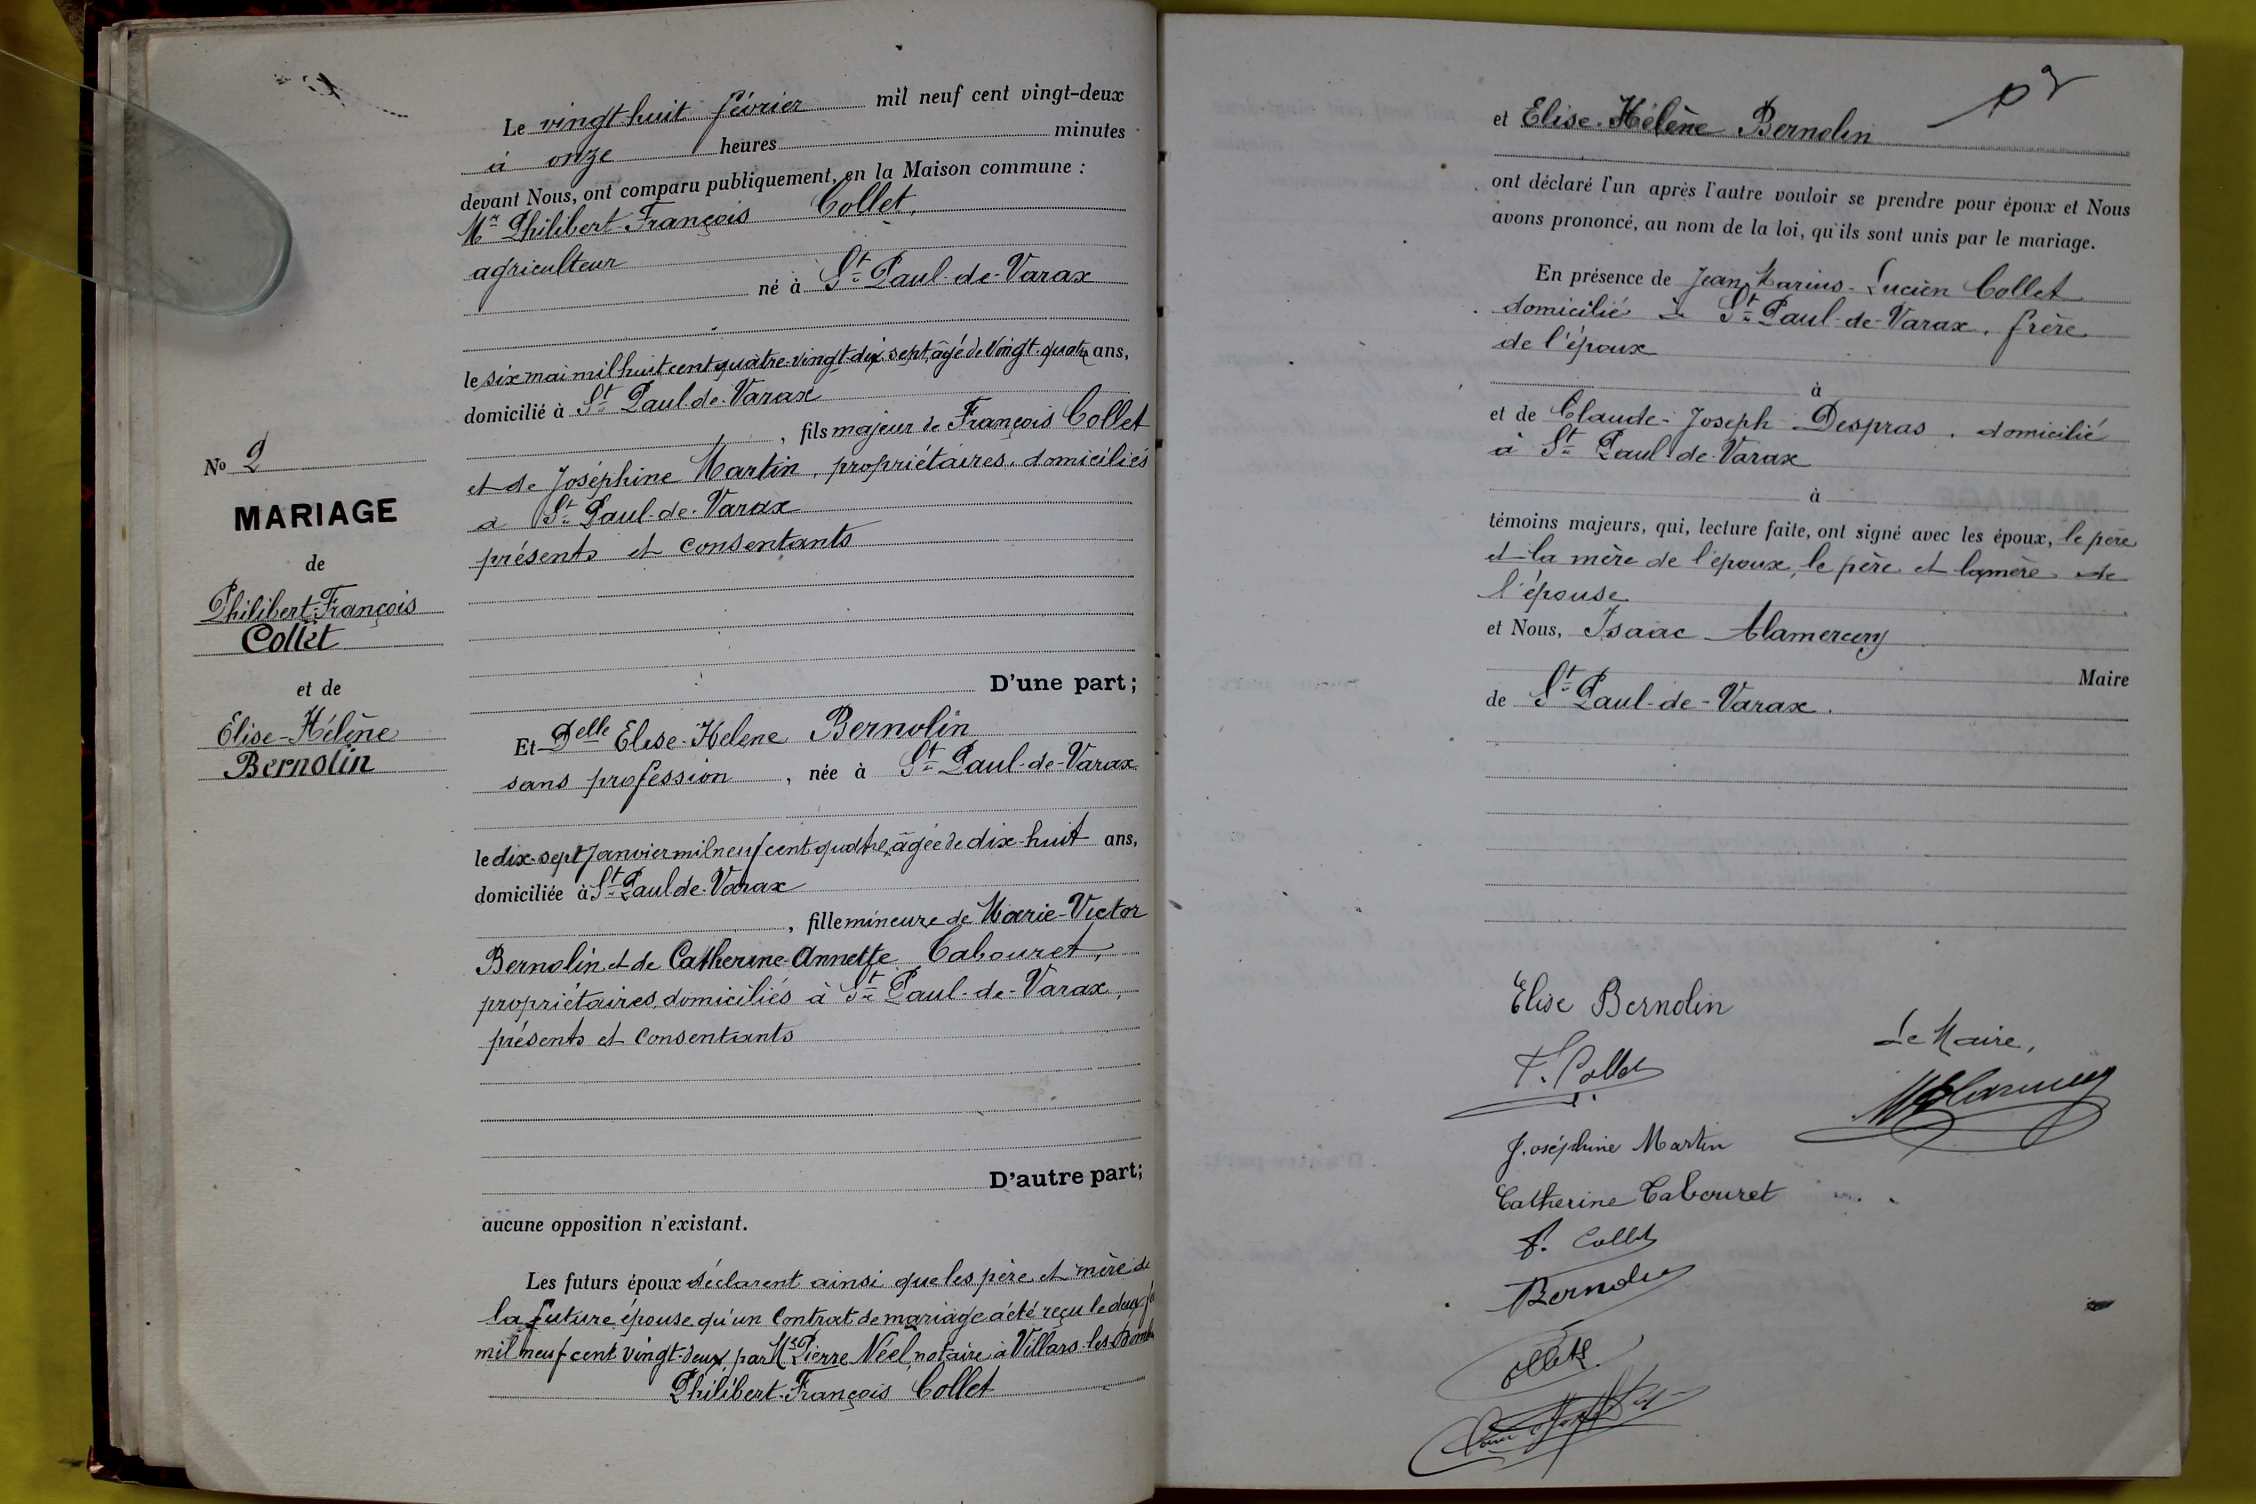 Le vingt-huit février mil neuf cent vingt-deux
à onze heures minutes
devant Nous, ont comparu publiquement, en la Maison commune :
Mr Philibert-François Collet,
agriculteur
né à St Paul-de-Varax
le six mai mil huit cent quatre-vingt-dix-sept, âgé de vingt-quatre ans,
domicilié à St Paul-de-Varax
, fils majeur de François Collet
et de Joséphine Martin, propriétaires, domiciliés
à St Paul-de-Varax
présents et consentants
D'une part;
No 2
MARIAGE
de
Philibert-François
Collet
et de
Elise-Hélène
Bernolin
Et Delle Elise-Hélène Bernolin
sans profession, née à St Paul-de-Varax
le dix-sept Janvier mil neuf cent quatre, âgée de dix-huit ans,
domiciliée à St Paul de-Varax
, fille mineure de Marie-Victor
Bernolin et de Catherine-Annette Cabouret,
propriétaires, domiciliés à St Paul-de-Varax,
présents et consentants
D'autre part;
aucune opposition n'existant.
Les futurs époux déclarent ainsi que les père et mère de
la future épouse qu'un contrat de mariage a été reçu le deux
mil neuf cent vingt-deux, par Me Pierre Néel, notaire à Villars-les-Dombes
Philibert-François Collet
et Elise-Hélène Bernolin
ont déclaré l'un après l'autre vouloir se prendre pour époux et Nous
avons prononcé, au nom de la loi, qu'ils sont unis par le mariage.
En présence de Jean Marius-Lucien Collet
domicilié à St Paul-de-Varax, frère
de l'époux
à
et de Claude-Joseph Despras, domicilié
à St Paul-de-Varax
à
témoins majeurs, qui, lecture faite, ont signé avec les époux, le père
et la mère de l'époux, le père et la mère de
l'épouse
et Nous, Isaac Alamercery
Maire
de St Paul-de-Varax.
Elise Bernolin
Le Maire,
F. Collet
Joséphine Martin
Catherine Cabouret
F. Collet
Bernolin
Collet